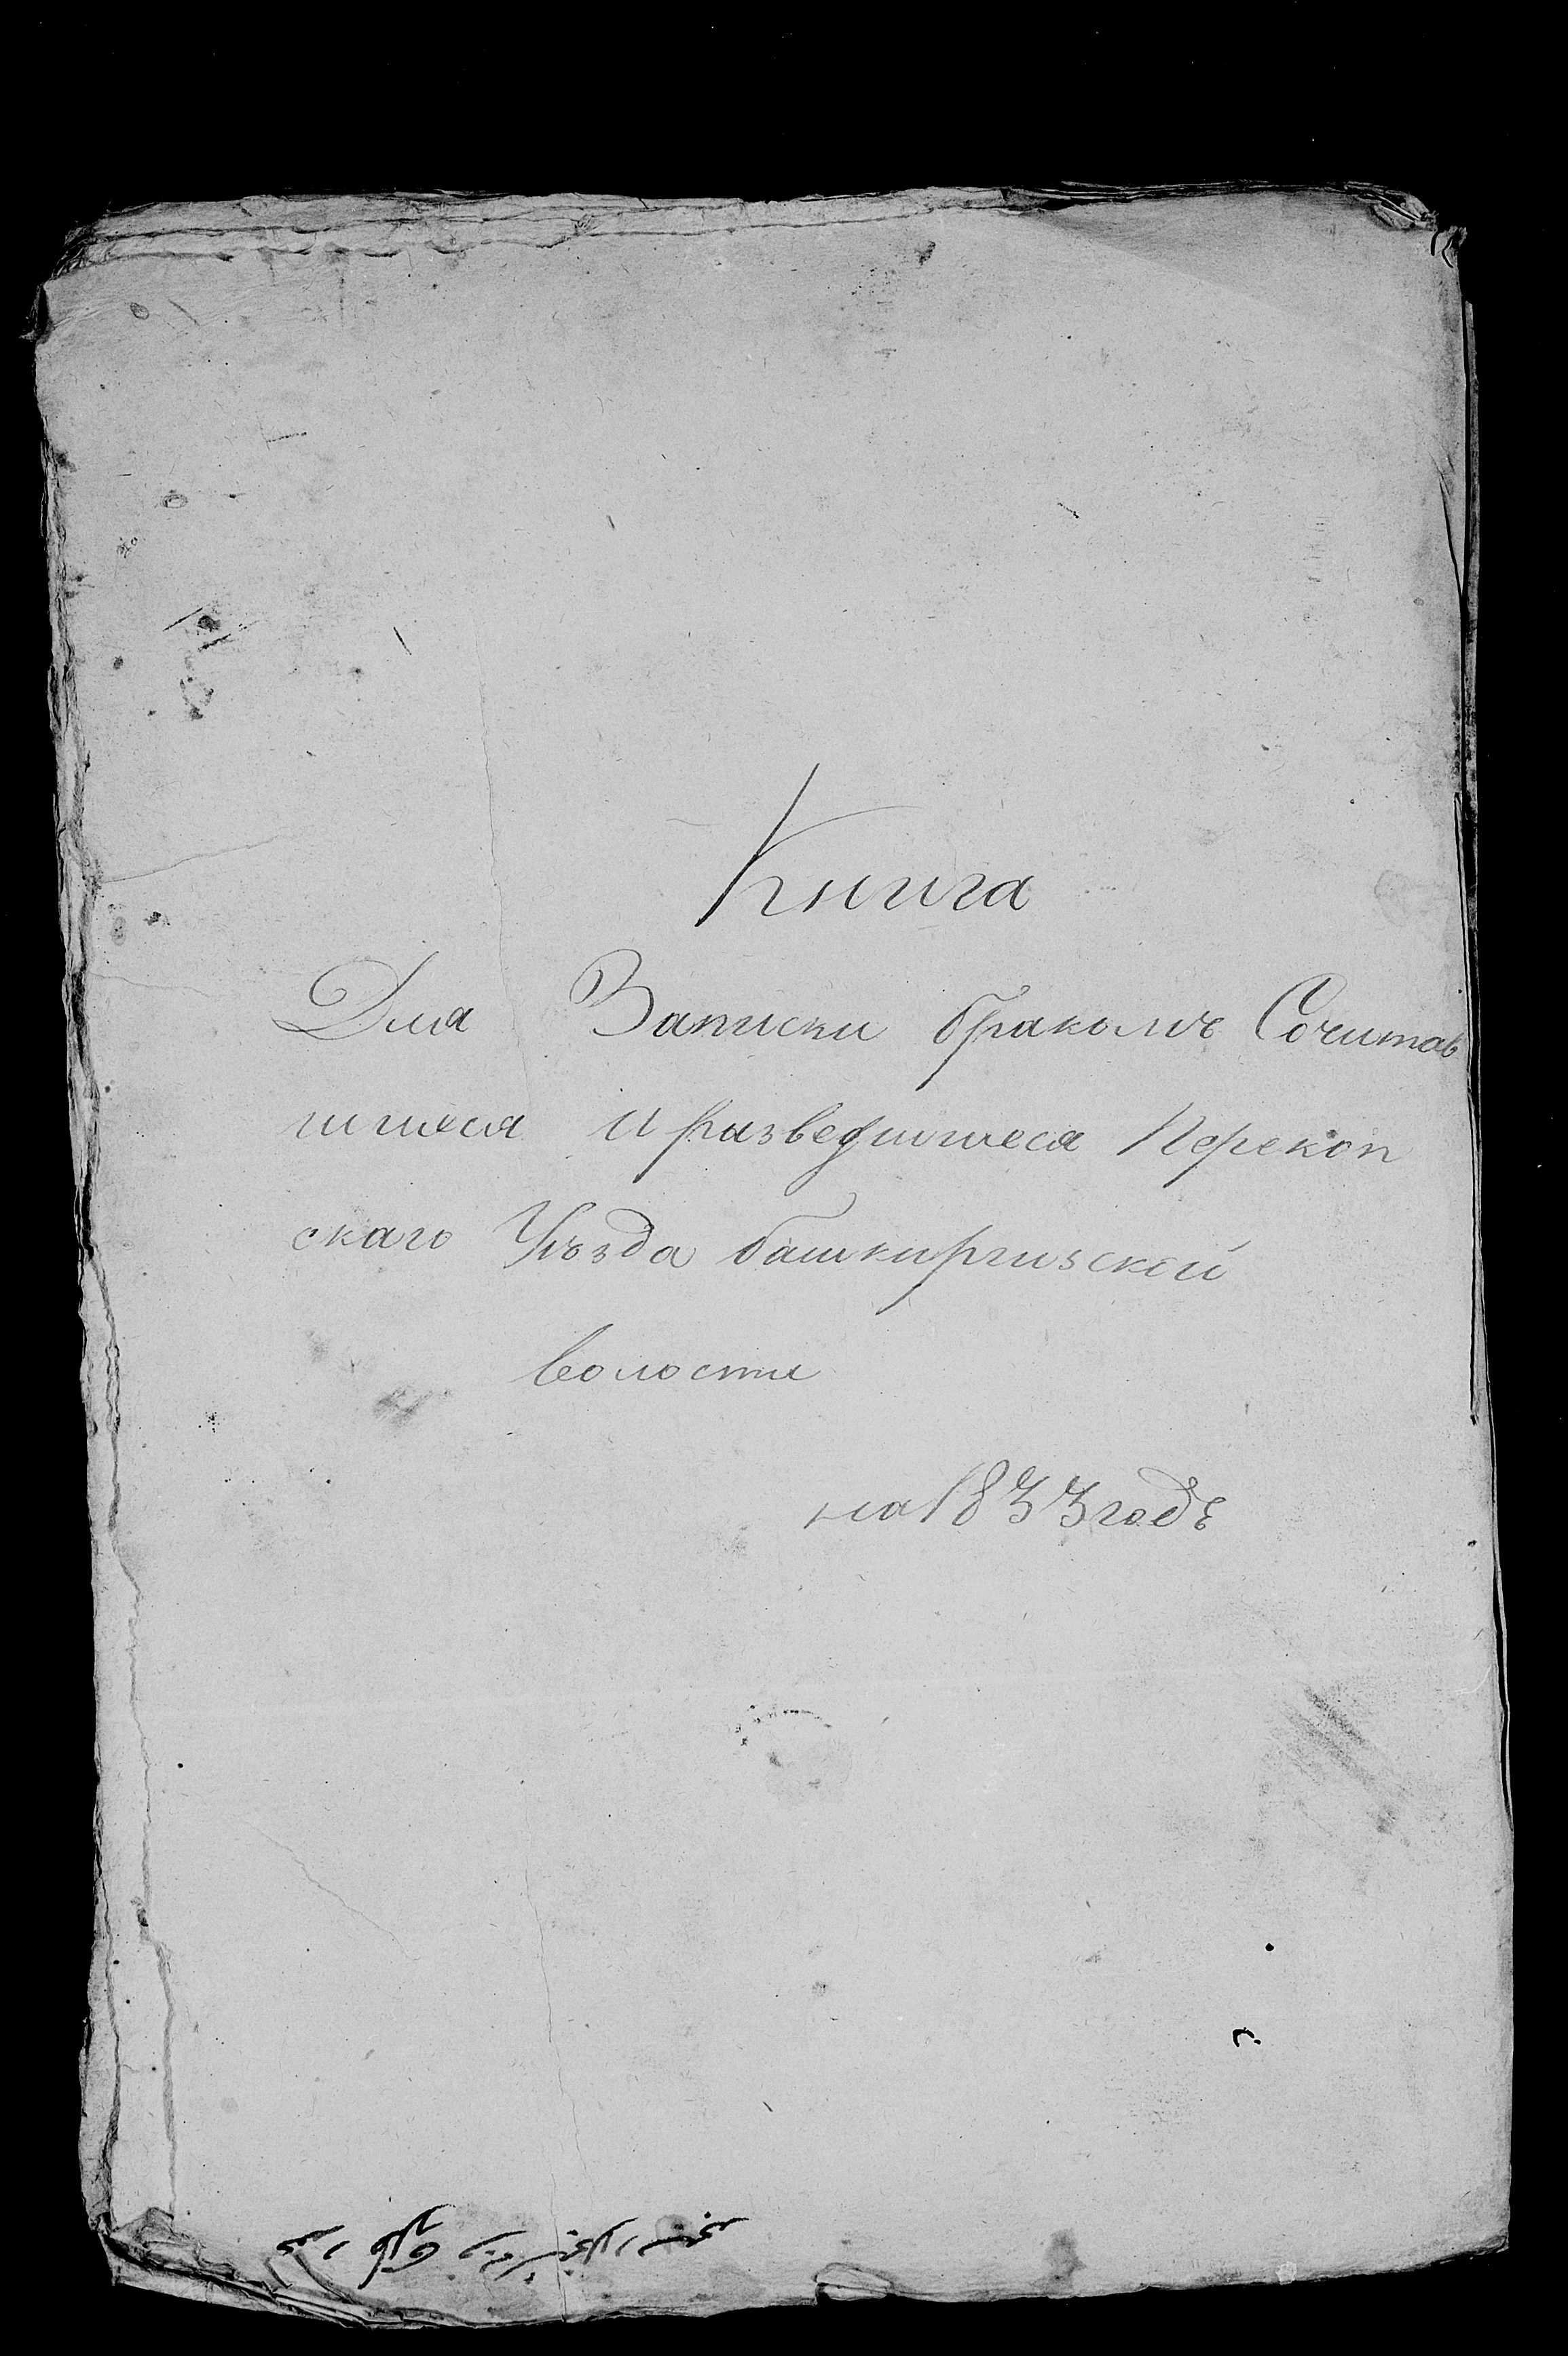 Книга
Для Записки бракомъ Сочитав
шиеся и разведшиеся Перекоп
скаго Уѣзда башкиргизской
волости
на 1833 годъ